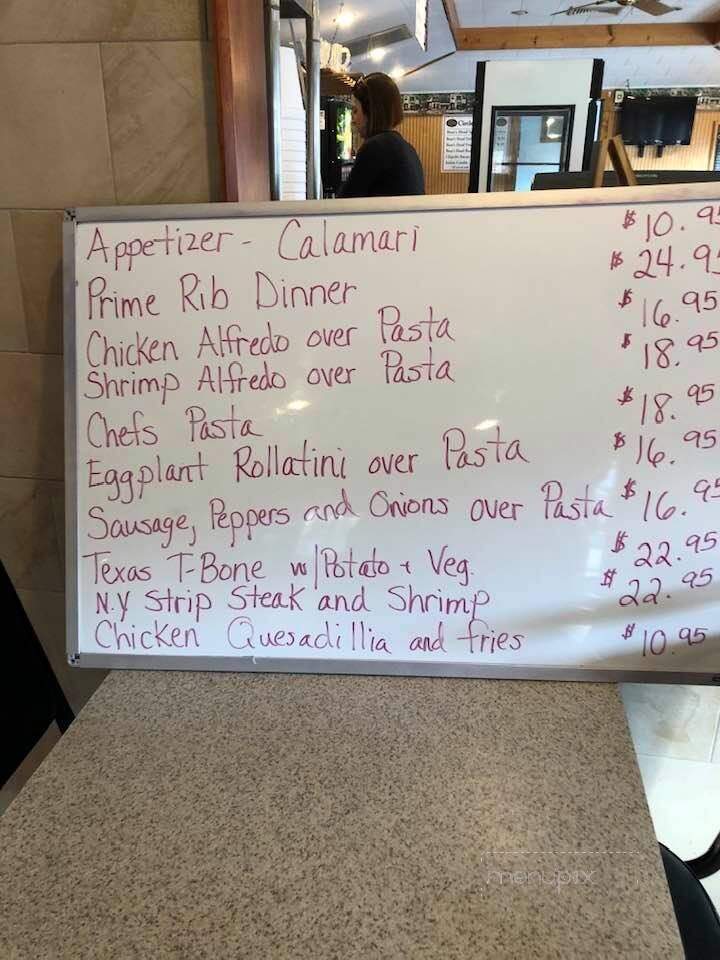 Appetizer - Calamari $10.95
Prime Rib Dinner $24.95
Chicken Alfredo over Pasta $16.95
Shrimp Alfredo over Pasta $18.95
Chefs Pasta $18.95
Eggplant Rollatini over Pasta $16.95
Sausage, Peppers and Onions over Pasta $16.95
Texas T-Bone w/Potato + Veg. $22.95
N.Y Strip Steak and Shrimp $22.95
Chicken Quesadillia and fries $10.95
menupix